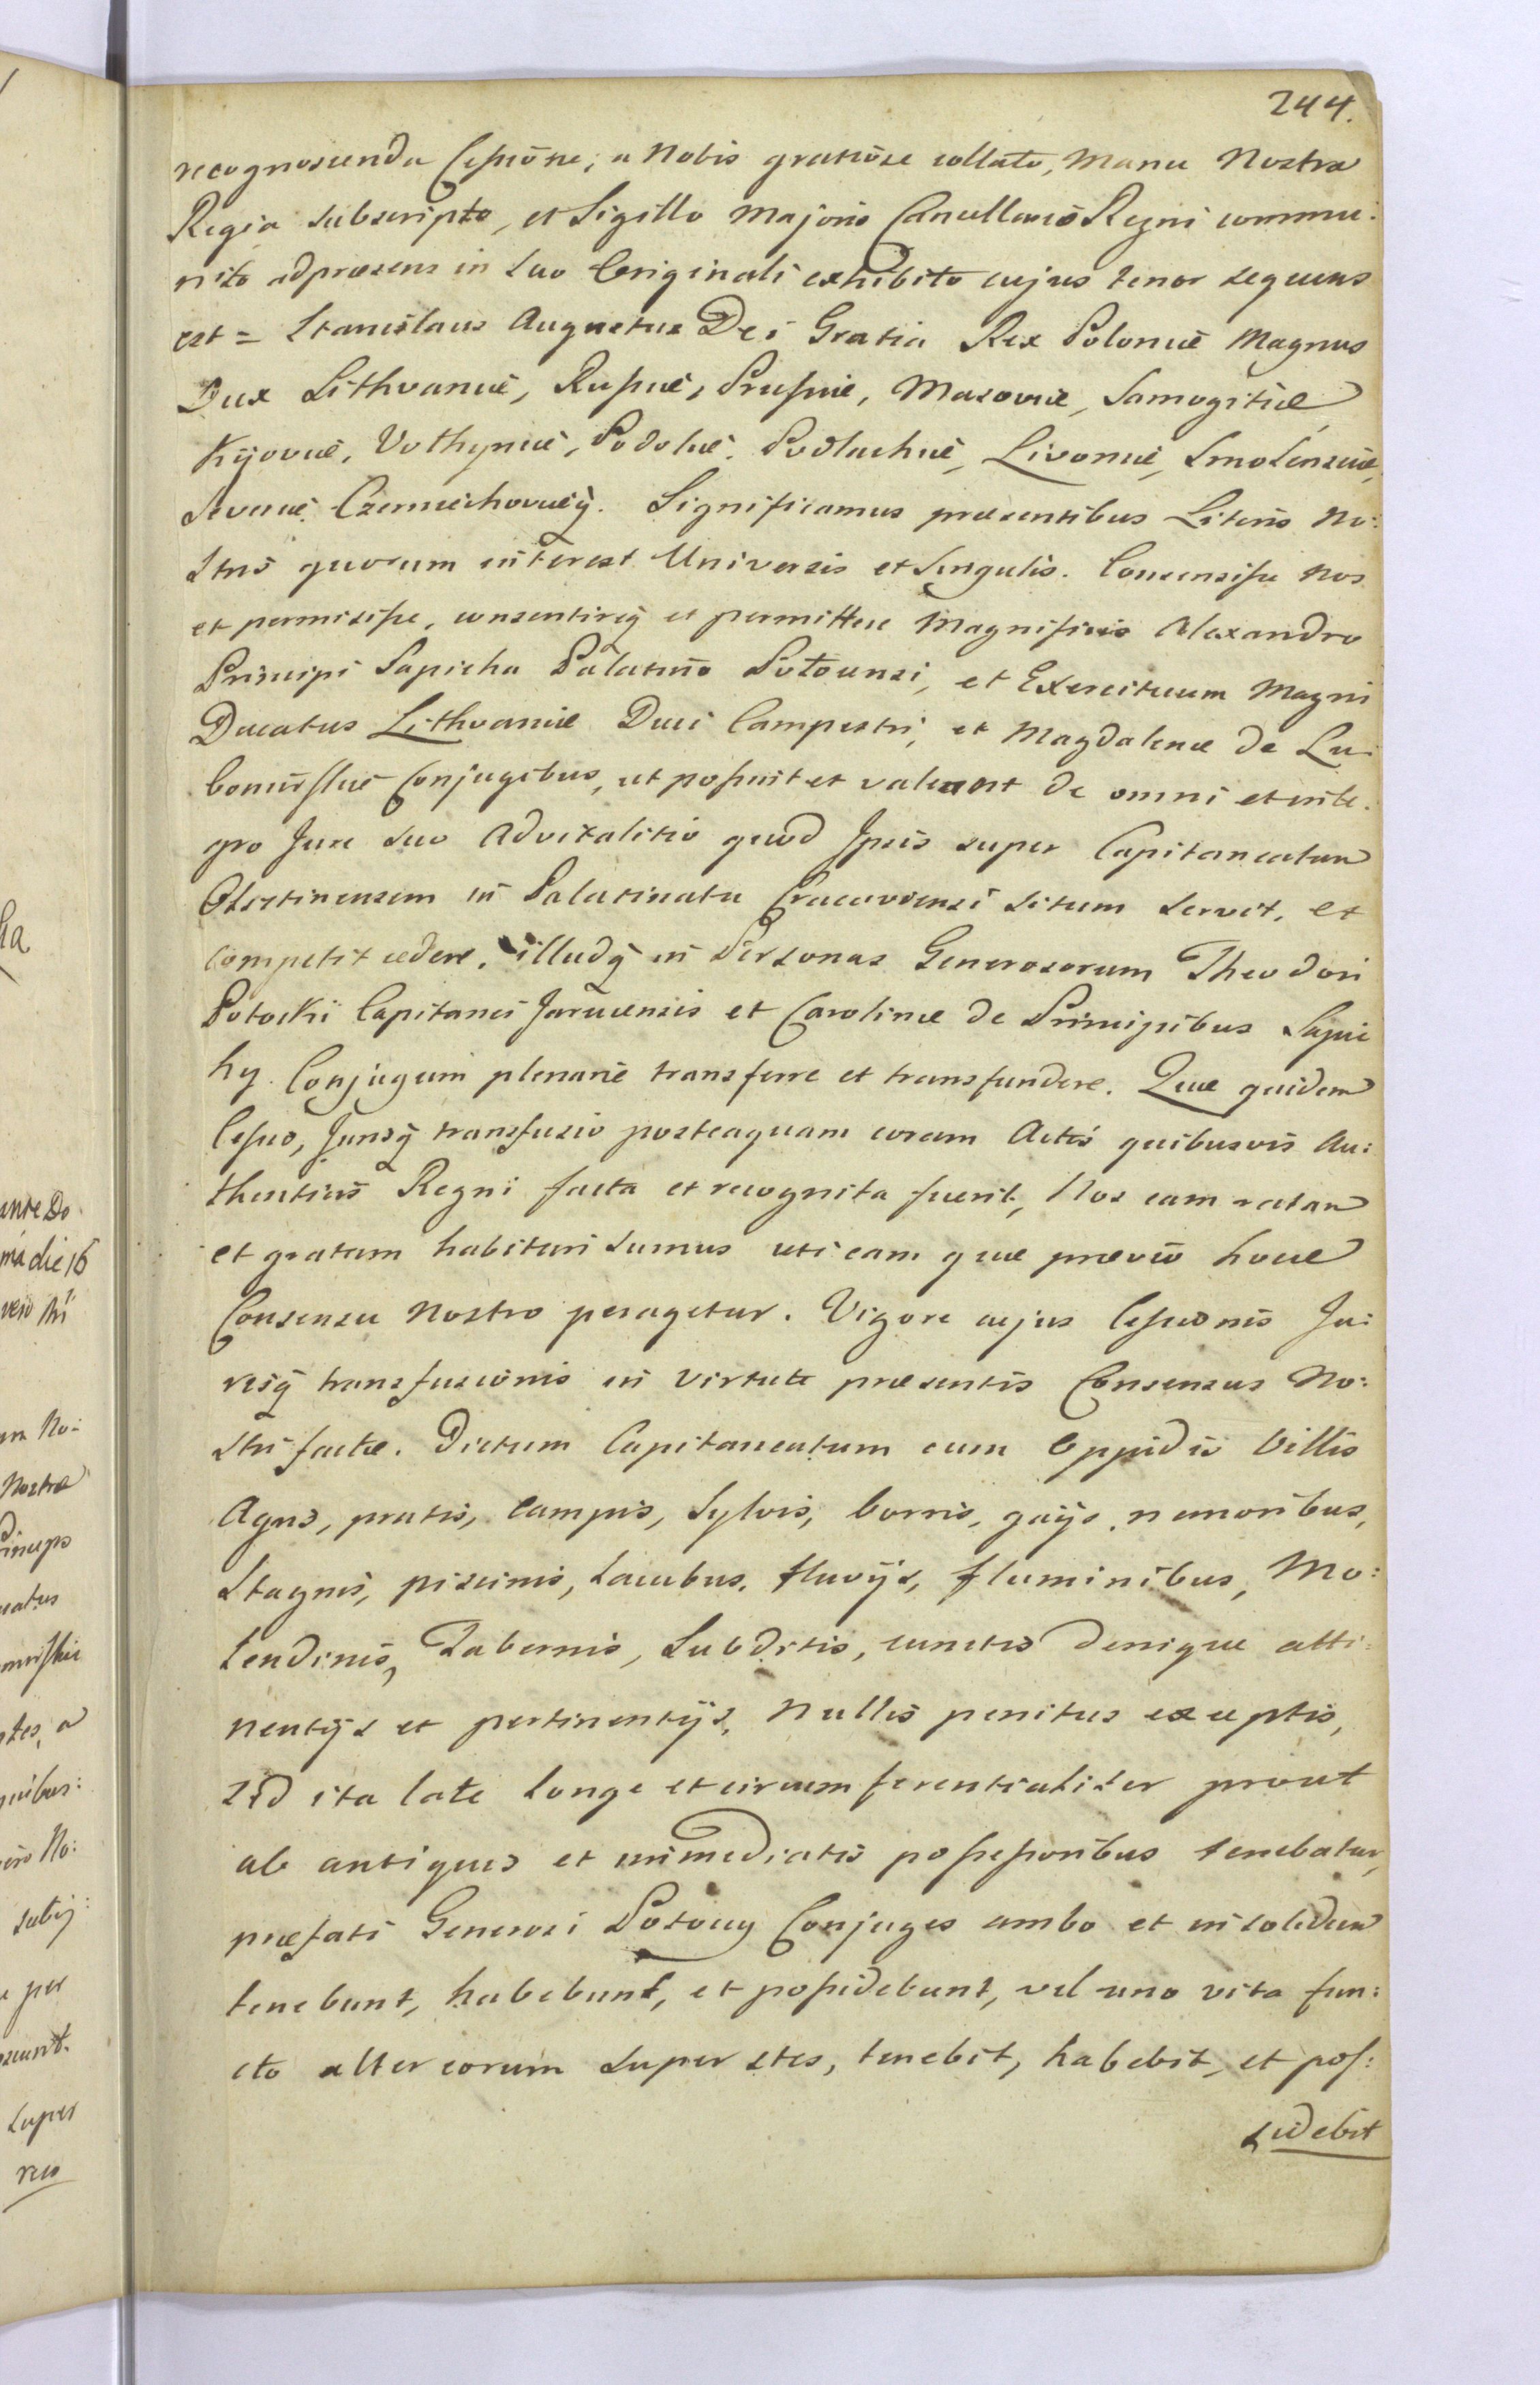 244.
recognoscenda Cessione, a Nobis gratiose collato, Manu Nostra
Regia subscripto, et Sigillo Majoris Cancellariæ Regni commu:
nito ad præsens in suo Originali exhibito cujus tenor sequens
est = Stanislaus Augustus Dei Gratia Rex Poloniæ Magnus
Dux Lithvaniæ, Russiæ, Prussiæ, Masoviæ, Samogitiæ
Kijoviæ, Volhyniæ, Podoliæ, Podlachiæ, Livoniæ, Smolensciæ,
Severiæ Czerniechoviæq. Significamus præsentibus Literis No:
stris quorum interest Universis et Singulis. Consensisse Nos
et permisisse, consentireq et permittere Magnificis Alexandro
Principi Sapieha Palatino Polocensi, et Exercituum Magni
Ducatus Lithvaniæ Duci Campestri, et Magdalenæ de Lu:
bomirskie Conjugibus, ut possint et valeant de omni et inte:
gro Jure suo Advitalitio quod Ipsis super Capitaneatum
Olsztinensem in Palatinatu Cracoviensi situm servit, et
competit cedere, illudq in Personas Generosorum Theodori
Potocki Capitanei et Carolinæ de Principibus Sapie
hy Conjugum plenarie transferre et transfundere. Quæ quidem
Cessio, Jurisq transfusio posteaquam coram Actis quibusvis Au:
thenticis Regni facta et recognita fuerit, Nos eam ratam
et gratam habituri sumus uti eam quæ prævio hocce
Consensu Nostro peragetur. Vigore cujus Cessionis Ju:
risq transfusionis in virtute præsentis Consensus No:
stri factæ. Dictum Capitaneatum cum Oppidis Villis
Agris, pratis, Campis, Sylvis, borris, gaijs, nemoribus,
Stagnis, piscinis, Lacubus, fluvijs, fluminibus, Mo:
lendinis, Tabernis, Subditis, cunctis denique atti:
nentijs et pertinentijs, Nullis penitus exceptis,
sed ita late longe et circumferentialiter prout
ab antiquis et immediatis possessoribus tenebatur,
præfati Generosi Potoccy Conjuges ambo et in solidum
tenebunt, habebunt, et possidebunt, vel uno vita fun:
cto alter eorum superstes, tenebit, habebit, et pos:
sidebit